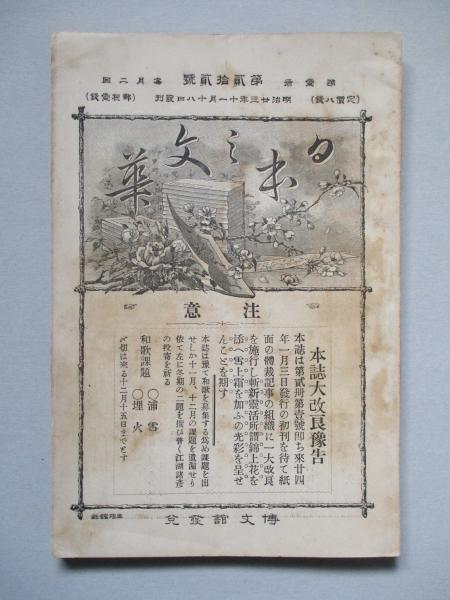 第壹卷 第貳拾貳號 每月二回
(定價八錢) 明治廿三年十一月十八日發刊 (郵稅壹錢)
日本之文華
注意
本誌大改良豫告
本誌は第貳卷第壹號即ち來廿四
年一月三日發行の初刊を待て紙
面の體裁記事の組織に一大改良
を施行し斬新靈活所謂錦上花を
添へ雪上霜を加ふの光彩を呈せ
んことを期す
本誌は豫て和歌を募集する爲め課題を出
せしか十一月、十二月の課題を遺漏せり
依て左に冬期の二題を掲げ普く江湖諸彥
の投寄を祈る
和歌課題 〇浦雪 〇埋火
〆切は來る十二月十五日までとす
博文館發兌